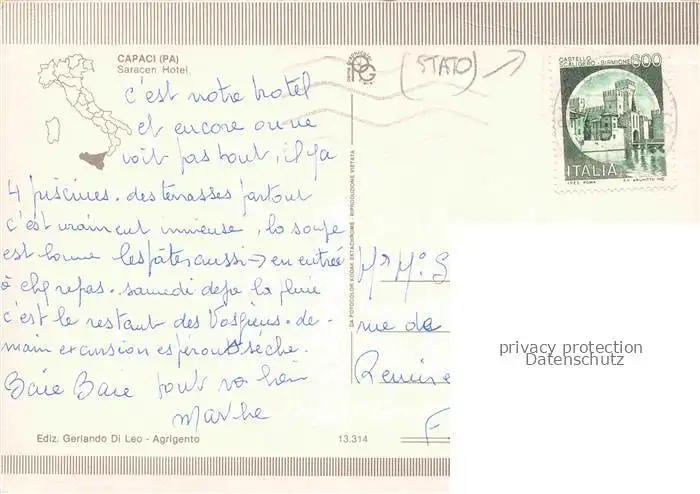 CAPACI (PA)
Saracen Hotel
c'est notre hotel
et encore on ne
voit pas tout, il y a
4 piscines. des terrasses partout
c'est vraiment immense, la soupe
est bonne les pâtes aussi → en entrée
à chq repas. samedi deja la pluie
c'est le restant des Vosgiens. de-
main excursion espérons sèche.
Baie Baie tout va bien
Marthe
Ediz. Gerlando Di Leo - Agrigento
13.314
DA FOTOCOLOR KODAK EKTACHROME - RIPRODUZIONE VIETATA
(STATO) →
CASTELLO
SCALIGERO - SIRMIONE
600
ITALIA
Mr Me S
rue de
Remire
F
privacy protection
Datenschutz